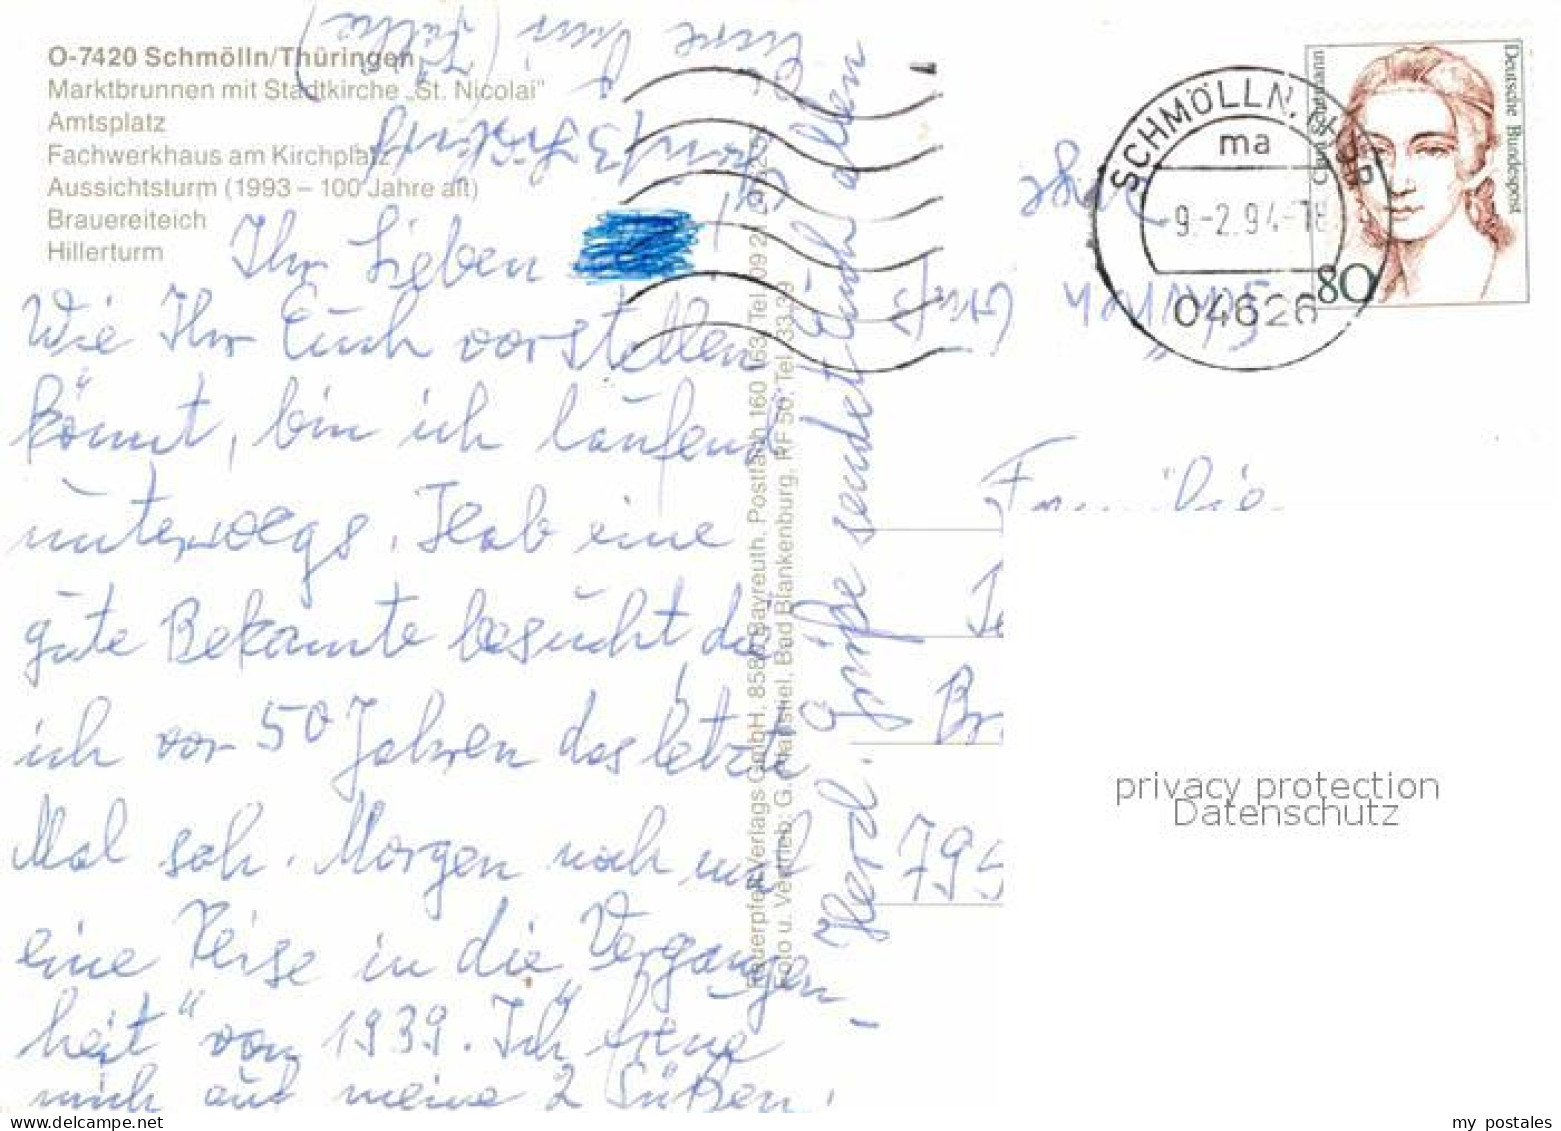 O-7420 Schmölln/Thüringen
Marktbrunnen mit Stadtkirche „St. Nicolai"
Amtsplatz
Fachwerkhaus am Kirchplatz
Aussichtsturm (1993 – 100 Jahre alt)
Brauereiteich
Hillerturm
Ihr Lieben
Wie Ihr Euch vorstellen
könnt, bin ich laufend
unterwegs. Hab eine
gute Bekannte besucht die
ich vor 50 Jahren das letzte
Mal sah. Morgen noch mal
eine Reise in die Vergangen-
heit" von 1939. Ich freue
mich auf meine 2 Süßen!
Herzl. Grüße sendet Euch allen
Eure
Bayreuth, Postfach 160 163, Tel. 09 21
Foto u. Vertrieb: G. Bad Blankenburg, RF 50, Tel. 33 39
SCHMÖLLN, THÜR
ma
-9.-2.94-18
04626
Deutsche Bundespost
80
Familie
Br
795
privacy protection
Datenschutz
my postales